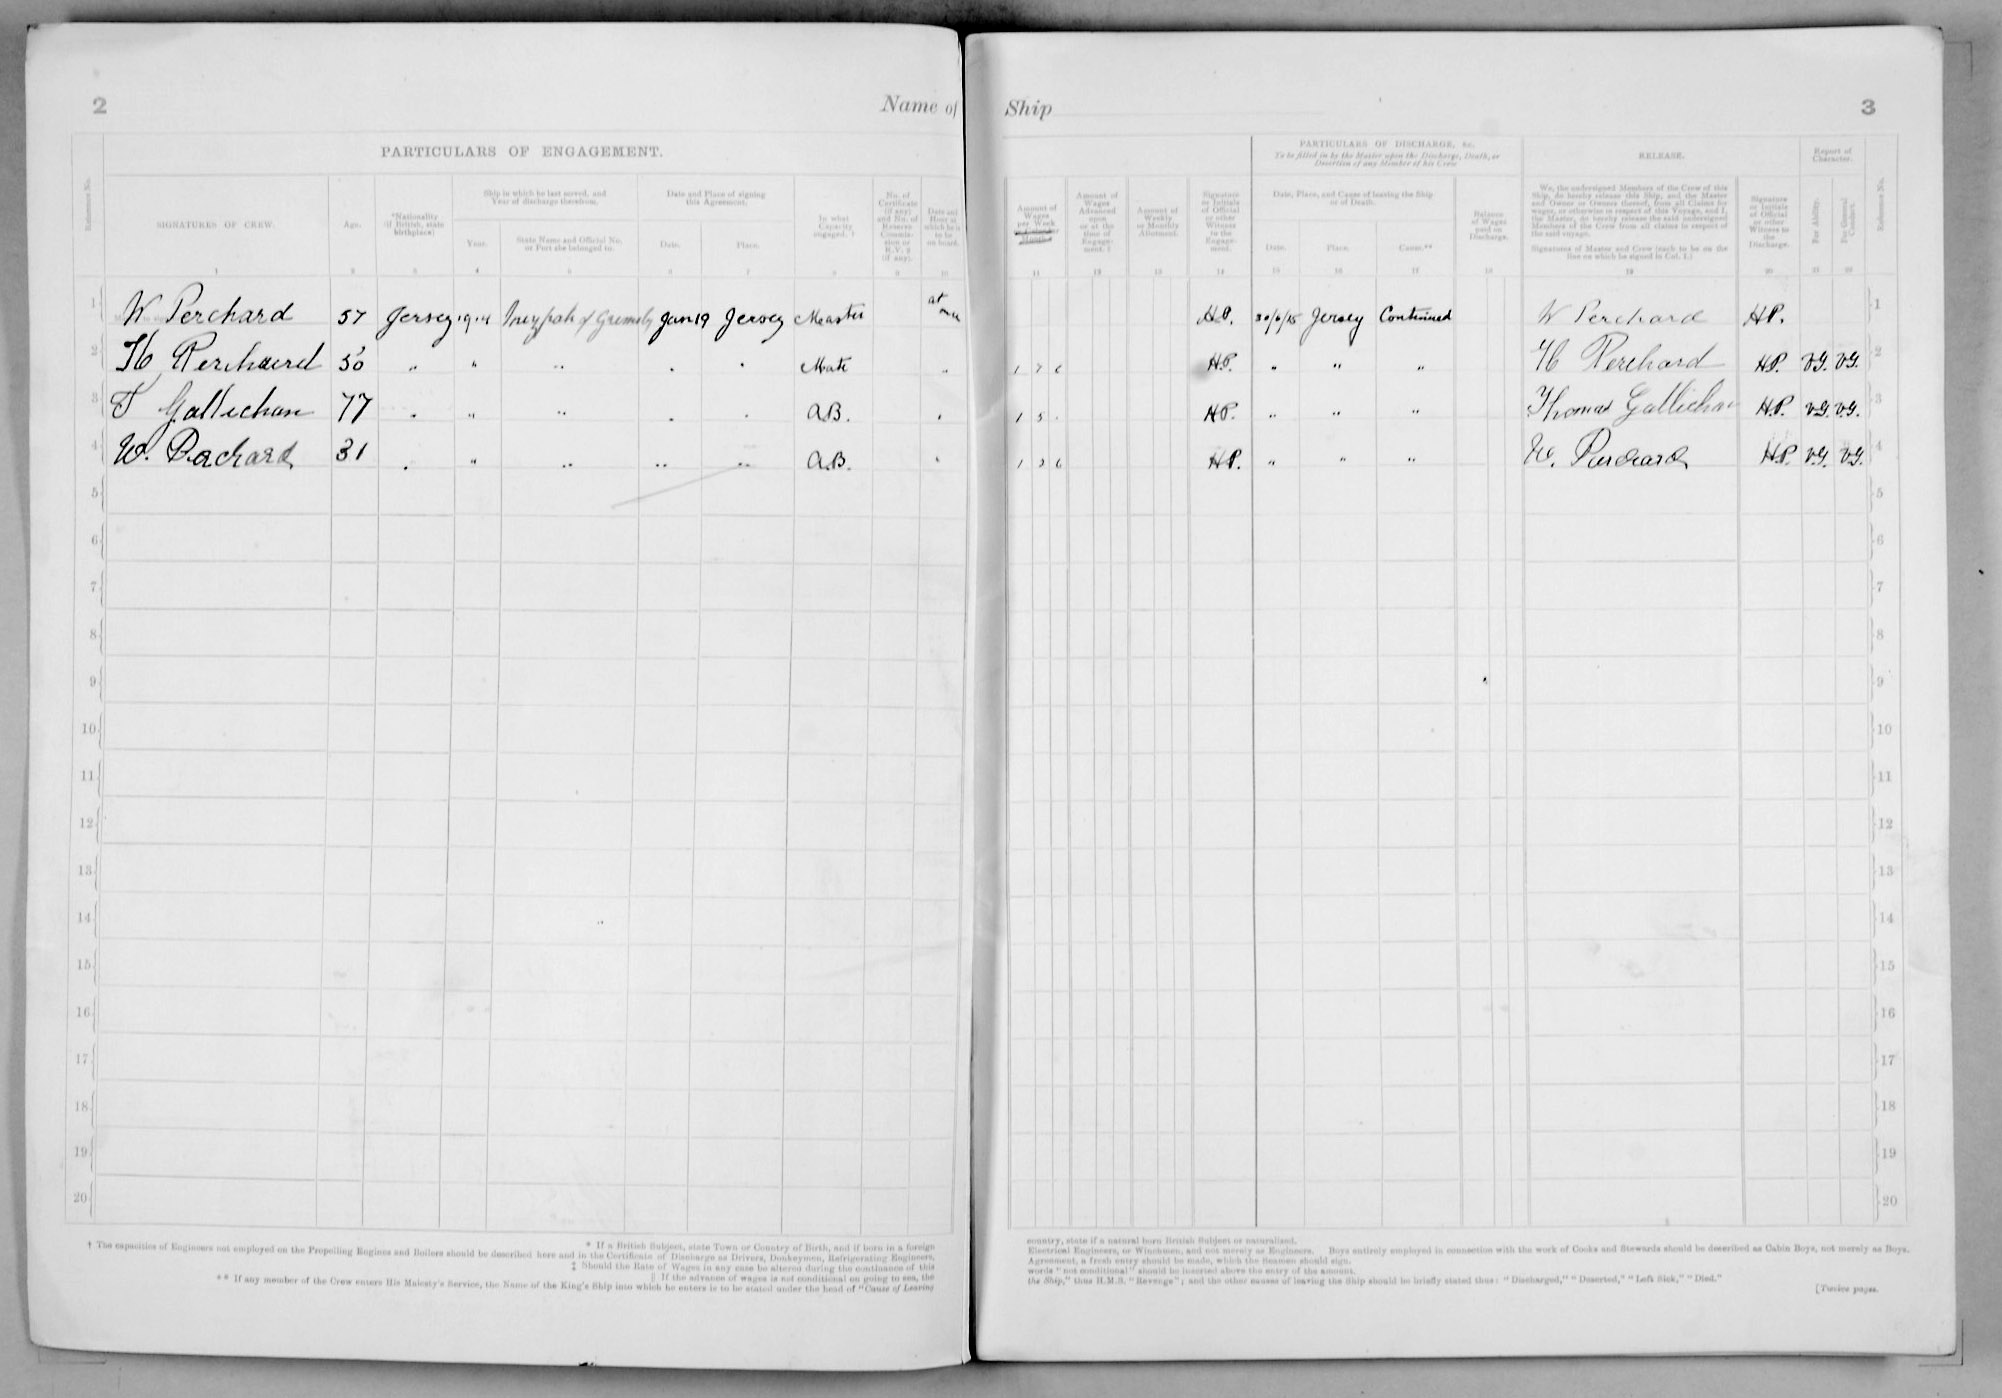 2
Name of
PARTICULARS OF ENGAGEMENT.
Reference No.
SIGNATURES OF CREW.
Age.
*Nationality
(if British, state
birthplace)
Ship in which he last served, and
Year of discharge therefrom.
Year.
State Name and Official No.
or Port she belonged to.
Date and Place of signing
this Agreement.
Date.
Place.
In what
Capacity
engaged. †
No. of
Certificate
(if any)
and No. of
Reserve
Commis-
sion or
R.V. 2
(if any).
Date and
Hour at
which he is
to be
on board.
1 2 3 4 5 6 7 8 9 10
1 W Perchard 57 Jersey 1914 of Grimsby Jan 19 Jersey Master at once
2 H Perchard 50 " " " " " Mate "
3 T Gallichan 77 " " " " " A.B. "
4 W. Perchard 31 " " " " " A.B. "
5
6
7
8
9
10
11
12
13
14
15
16
17
18
19
20
* If a British Subject, state Town or Country of Birth, and if born in a foreign
† The capacities of Engineers not employed on the Propelling Engines and Boilers should be described here and in the Certificate of Discharge as Drivers, Donkeymen, Refrigerating Engineers,
‡ Should the Rate of Wages in any case be altered during the continuance of this
|| If the advance of wages is not conditional on going to sea, the
** If any member of the Crew enters His Majesty's Service, the Name of the King's Ship into which he enters is to be stated under the head of "Cause of Leaving
Ship
3
Amount of
Wages
per Week
Amount of
Wages
Advanced
upon
or at the
time of
Engage-
ment. ‡
Amount of
Weekly
or Monthly
Allotment.
Signature
or Initials
of Official
or other
Witness
to the
Engage-
ment.
PARTICULARS OF DISCHARGE, &c.
To be filled in by the Master upon the Discharge, Death, or
Desertion of any Member of his Crew
Date, Place, and Cause of leaving the Ship
or of Death.
Date.
Place.
Cause.**
Balance
of Wages
paid on
Discharge.
RELEASE.
We, the undersigned Members of the Crew of this
Ship, do hereby release this Ship, and the Master
and Owner or Owners thereof, from all Claims for
wages, or otherwise in respect of this Voyage, and I,
the Master, do hereby release the said undersigned
Members of the Crew from all claims in respect of
the said voyage.
Signatures of Master and Crew (each to be on the
line on which he signed in Col. 1.)
Signature
or Initials
of Official
or other
Witness to
the
Discharge.
Report of
Character.
For Ability.
For General
Conduct.
Reference No.
11 12 13 14 15 16 17 18 19 20 21 22
H.P. 30/6/15 Jersey Continued W Perchard H.P. 1
1 7 6 H.P. " " " H Perchard H.P. V.G. V.G. 2
1 5 . H.P. " " " Thomas Gallichan H.P. V.G. V.G. 3
1 2 6 H.P. " " " W. Perchard H.P. V.G. V.G. 4
5
6
7
8
9
10
11
12
13
14
15
16
17
18
19
20
country, state if a natural born British Subject or naturalised.
Electrical Engineers, or Winchmen, and not merely as Engineers. Boys entirely employed in connection with the work of Cooks and Stewards should be described as Cabin Boys, not merely as Boys.
Agreement, a fresh entry should be made, which the Seamen should sign.
words "not conditional" should be inserted above the entry of the amount.
the Ship," thus H.M.S. "Revenge"; and the other causes of leaving the Ship should be briefly stated thus: "Discharged," "Deserted," "Left Sick," "Died."
[Twelve pages.